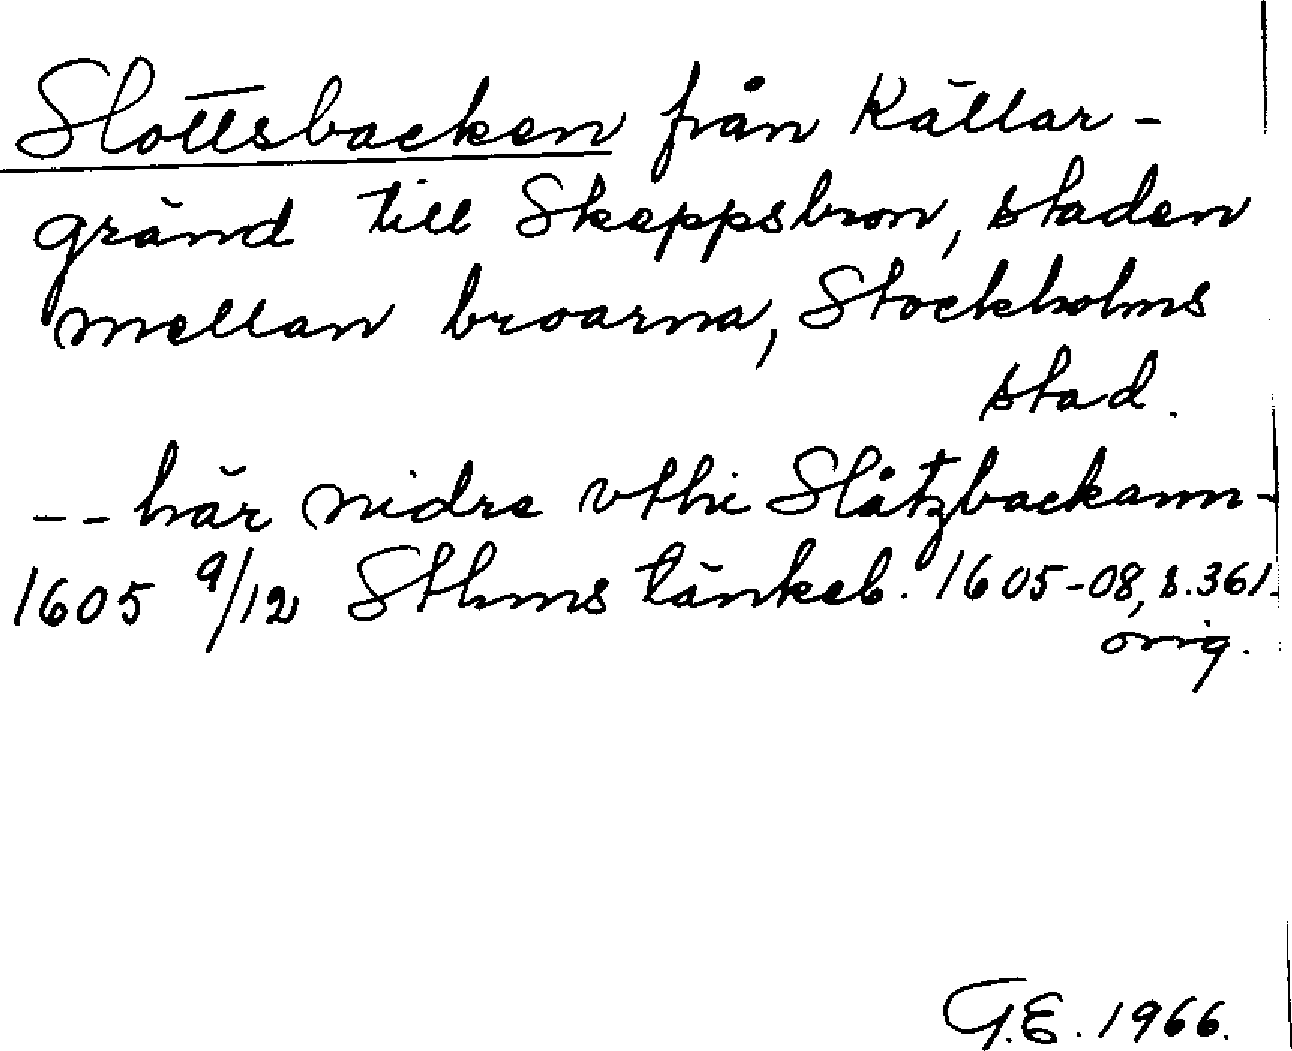 Slottsbacken från Källar-
gränd till Skeppsbron, staden
mellan broarna, Stockholms
stad.
-- här nidre vthi Slåtzbackann -
1605 9/12 Sthms tänkeb. 1605-08, s. 361.
orig.
G.E. 1966.